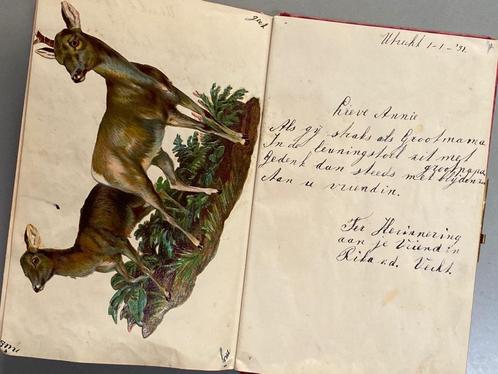 Utrecht 1-1-'31.
Lieve Annie
Als gij straks als Grootmama
In de leuningstoel zit met
grootpapa
Gedenk dan steeds met blijden zin
Aan u vriendin.
Ter Herinnering
aan je Vriendin
Rika v.d. Vecht.